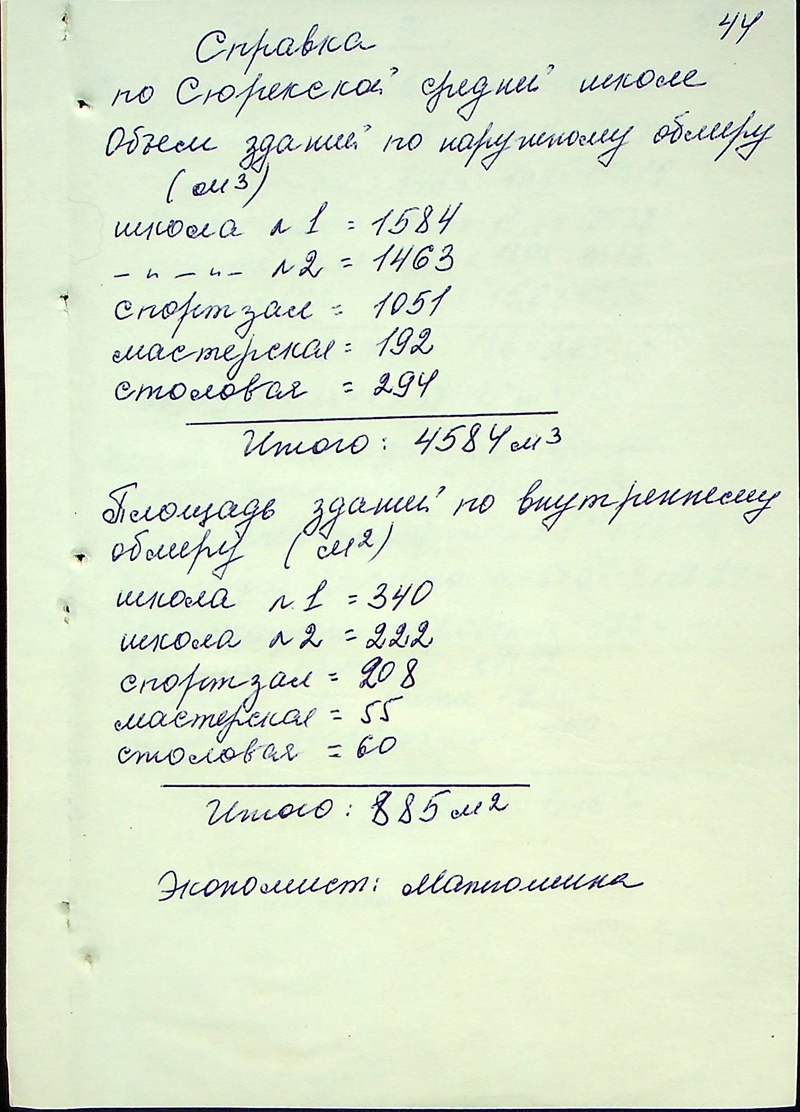 44
Справка
по Сюрекской средней школе
Объем зданий по наружному обмеру
(м3)
школа №1 = 1584
– " – " – №2 = 1463
спортзал = 1051
мастерская = 192
столовая = 294
Итого: 4584 м3
Площадь зданий по внутреннему
обмеру (м2)
школа №1 = 340
школа №2 = 222
спортзал = 208
мастерская = 55
столовая = 60
Итого: 885 м2
Экономист: Матюшина